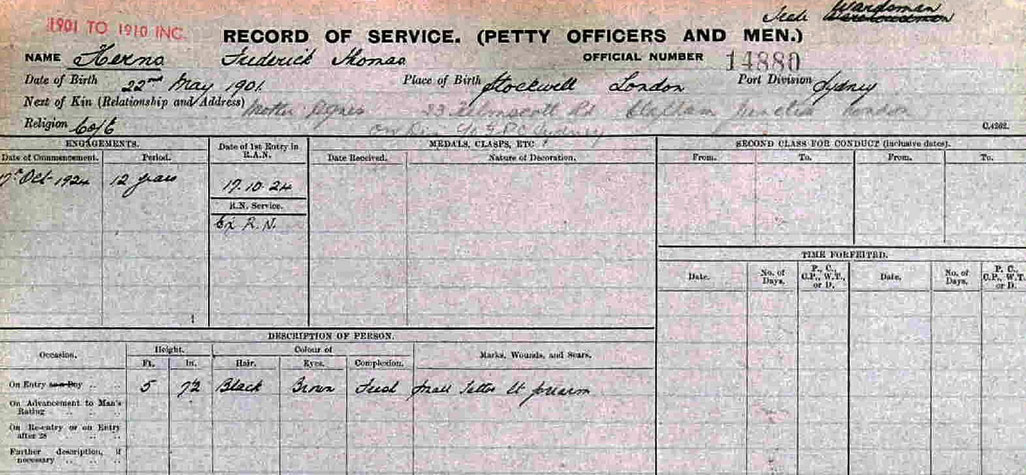 1901 TO 1910 INC.
Wardsman
RECORD OF SERVICE. (PETTY OFFICERS AND MEN.)
NAME Frederick Thomas OFFICIAL NUMBER 14880
Date of Birth 22nd May 1901. Place of Birth Stockwell London Port Division Sydney
Next of Kin (Relationship and Address) Mother Agnes 23 Rd Clapham Junction London
Religion C of E C.4262.
ENGAGEMENTS. Date of 1st Entry in R.A.N. MEDALS, CLASPS, ETC SECOND CLASS FOR CONDUCT (inclusive dates).
Date of Commencement. Period. Date Received. Nature of Decoration. From. To. From. To.
17th Oct 1924 12 years 17.10.24
R.N. Service.
Ex R.N.
TIME FORFEITED.
Date. No. of Days. P., C., C.P., W.T., or D. Date. No. of Days. P., C., C.P., W.T., or D.
DESCRIPTION OF PERSON.
Occasion. Height. Colour of Marks, Wounds, and Scars.
Ft. In. Hair. Eyes. Complexion.
On Entry as a Boy .. .. 5 7½ Black Brown Fresh Small Lt forearm
On Advancement to Man's Rating .. .. ..
On Re-entry or on Entry after 28 .. ..
Further description, if necessary .. .. ..